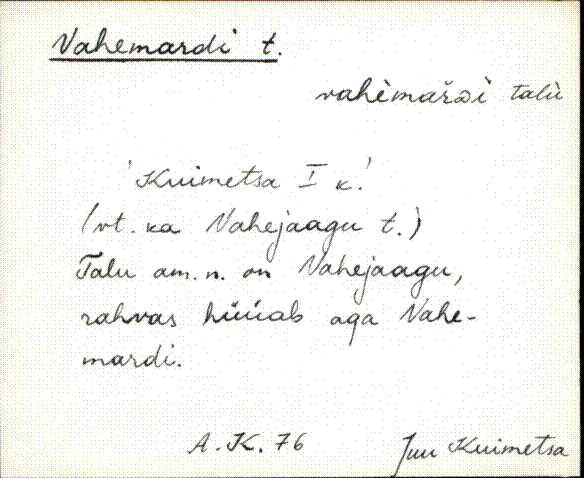 Vahemardi t.
vahèmařᴅì talù
'Kuimetsa I k.'
(vt. ka Vahejaagu t.)
Talu am. n. on Vahejaagu,
rahvas hüüab aga Vahe-
mardi.
A. K. 76
Juu Kuimetsa